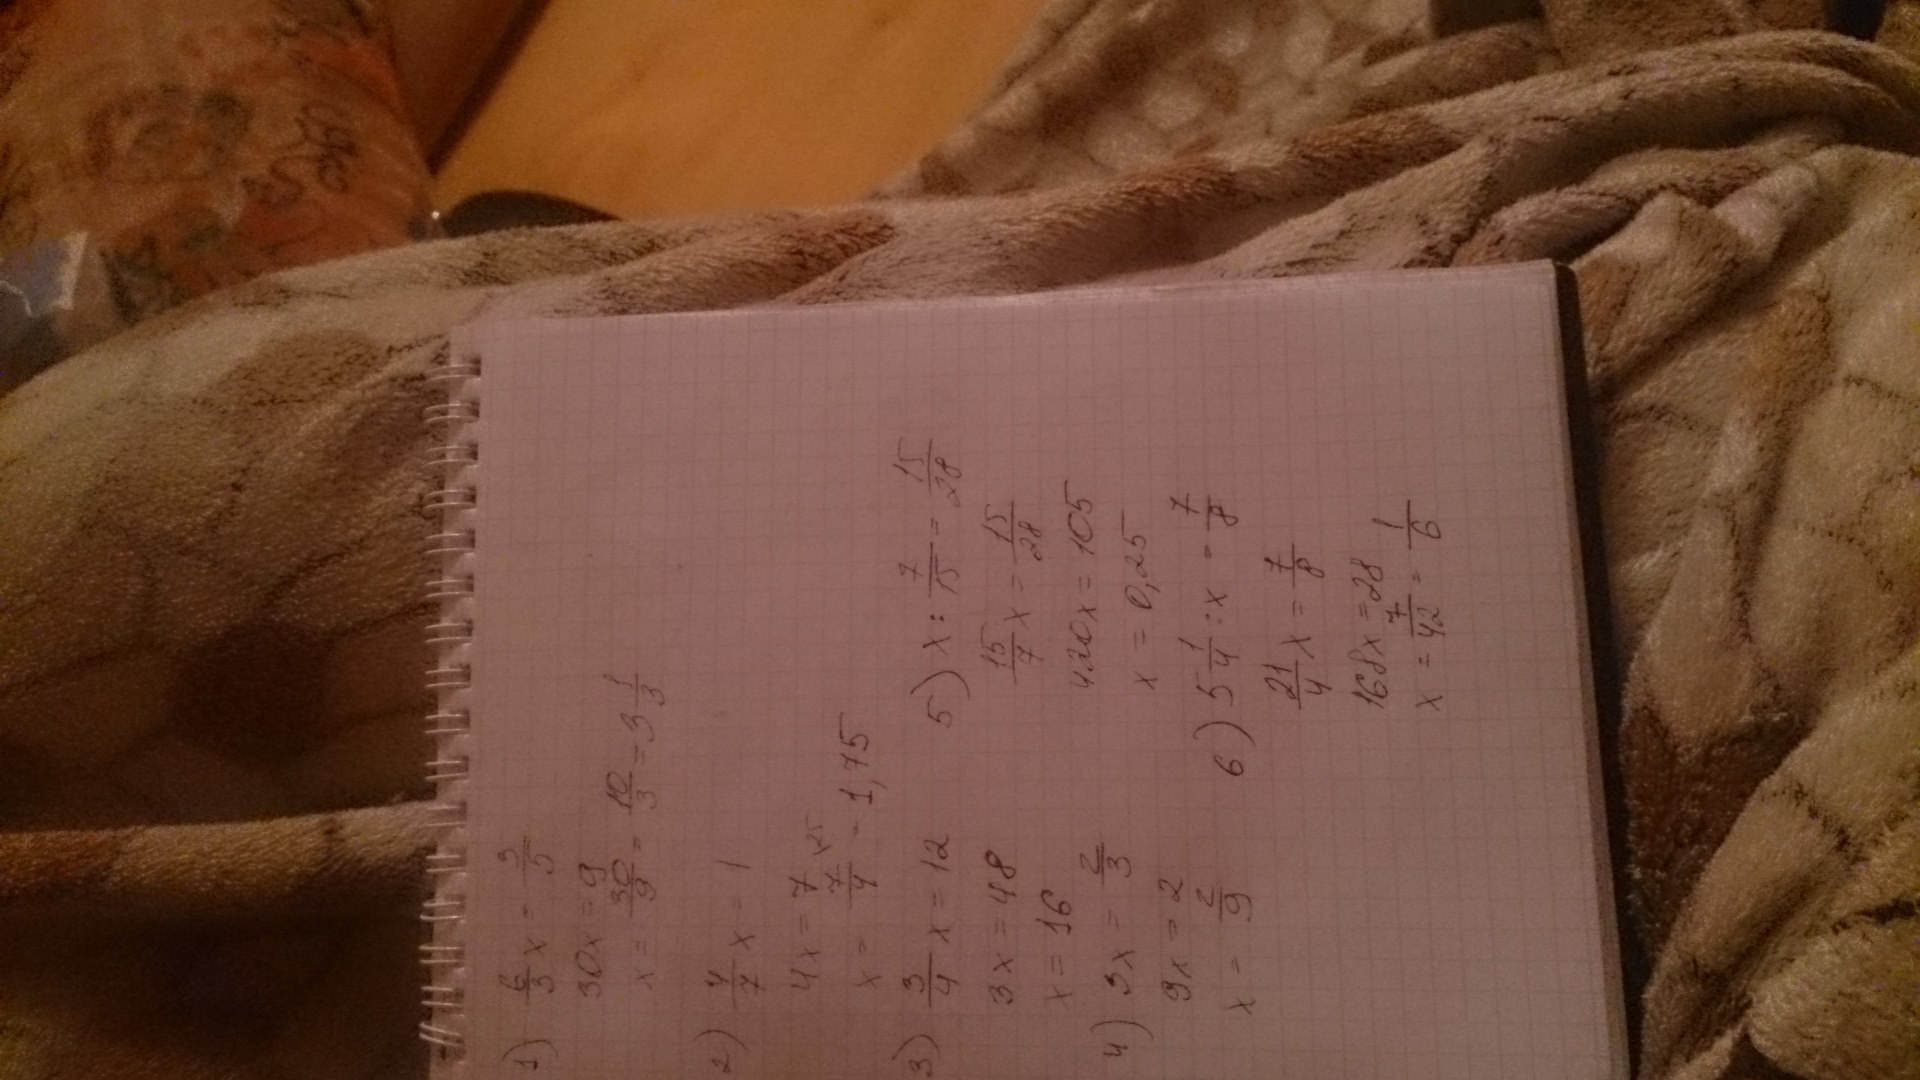 1) 6/3 x = 3/5
30x = 9
x = 30/9 = 10/3 = 3 1/3
2) 4/7 x = 1
4x = 7
x = 7/4 ×25 = 1,75
3) 3/4 x = 12
3x = 48
x = 16
4) 3x = 2/3
9x = 2
x = 2/9
5) x : 7/15 = 15/28
15/7 x = 15/28
420x = 105
x = 0,25
6) 5 1/4 : x = 7/8
21/4 x = 7/8
168x = 28
x = 7/42 = 1/6